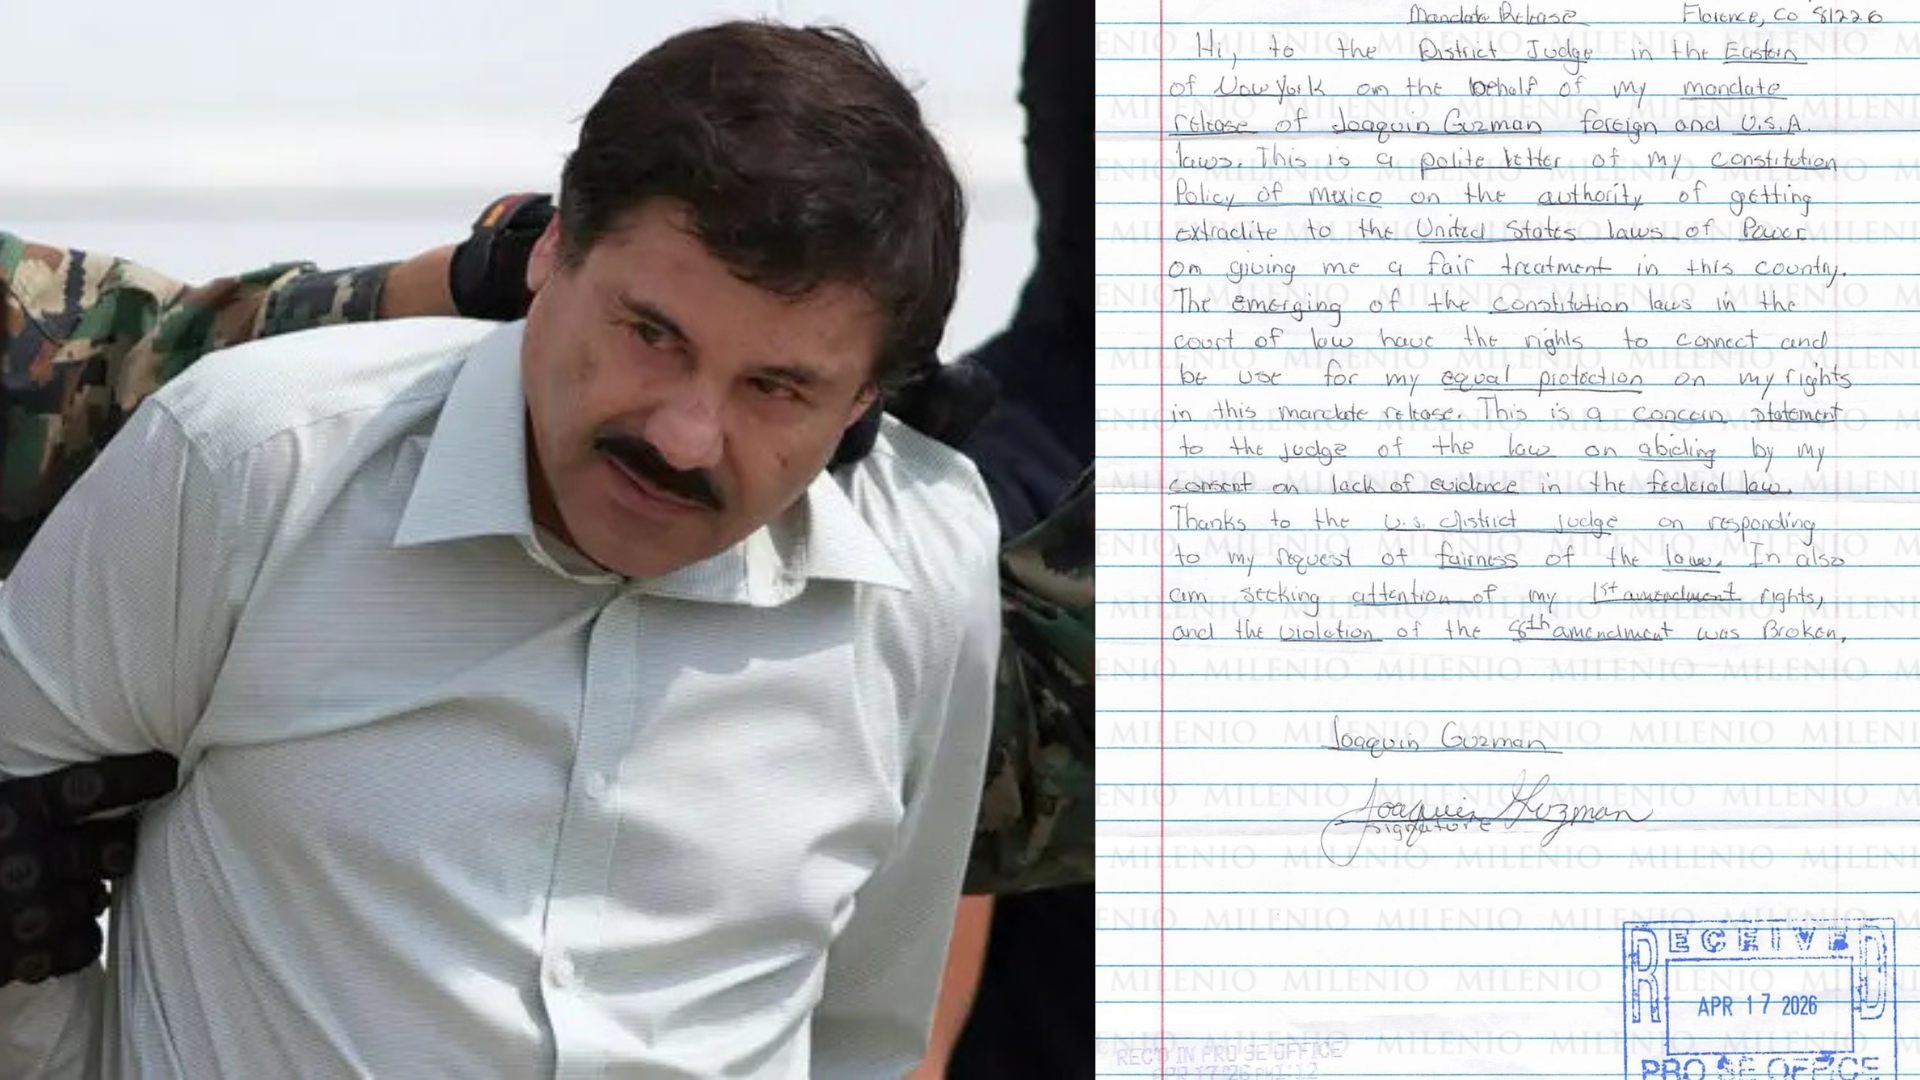 Mandate Release Florence, Co 81226
Hi, to the District Judge in the Eastern
of New York on the behalf of my mandate
release of Joaquin Guzman foreign and U.S.A.
laws. This is a polite letter of my constitution
Policy of Mexico on the authority of getting
extradite to the United States laws of Power
on giving me a fair treatment in this country.
The emerging of the constitution laws in the
court of law have the rights to connect and
be use for my equal protection on my rights
in this mandate release. This is a concern statement
to the judge of the law on abiding by my
consent on lack of evidence in the federal law.
Thanks to the U.S. district judge on responding
to my request of fairness of the law. In also
am seeking attention of my 1st amendment rights,
and the violation of the 8th amendment was Broken.
Joaquin Guzman
Joaquin Guzman
signature
RECEIVED
APR 17 2026
PRO SE OFFICE
REC'D IN PRO SE OFFICE
APR 17 '26 PM1:12
MILENIO